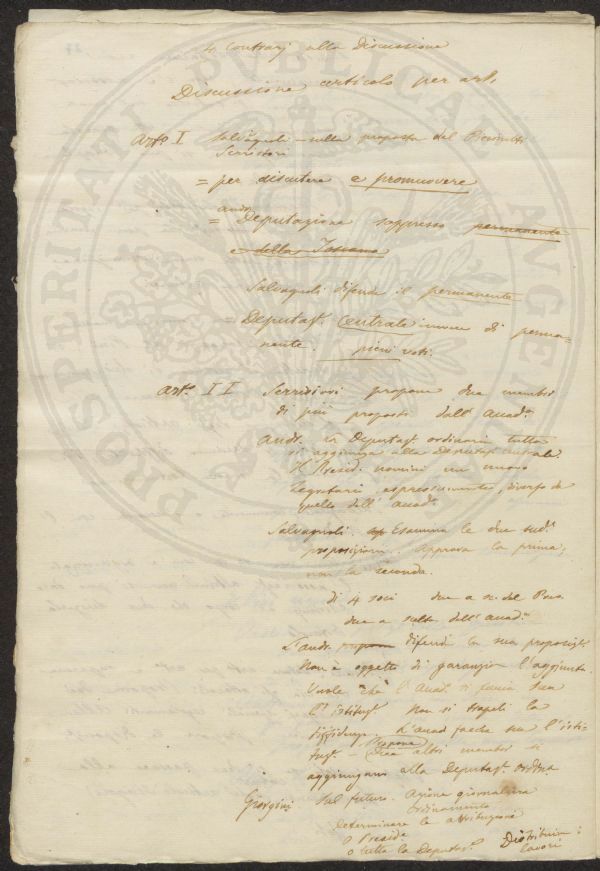 4 Contrarj alla Discussione
Discussione articolo per art.
Art.º I Salvagnoli sulla proposta del
= per discutere e promuovere
= Deputazione soppresso permanente
e della Toscana
Salvagnoli difende il permanente
Deputaz.e Centrale invece di perma-
nente. pieni voti.
Art.º II propone due membri
di più proposti dall' Accad.a
And. Deputaz.e ordinaria tutta
si aggiunga alla Deputaz.e centrale
Il Presid.e nomini un nuovo
Segretario espressamente, diverso da
quello dell' Accad.a
Salvagnoli. Esamina le due sud.e
proposizioni. Approva la prima,
non la seconda.
di 4 soci due a sc. del Pres.
due a scelta dell' Accad.a
difende la sua proposiz.e
Non è oggetto di garanzia l'aggiunta.
Vuole che l' Accad. si faccia sua
l' istituz.e Non si trapeli la
diffidenza. L' Accad. faccia sua l' isti-
tuz.e Due altri membri si
aggiungano alla Deputaz.e ordin.a
Giorgini Sul futuro. Azione giornaliera
ordinamento
determinare le attribuzioni
o Preside
o tutta la Deputaz.e Distribuire i
lavori
PROSPERITATI PUBLICAE AUGENDAE